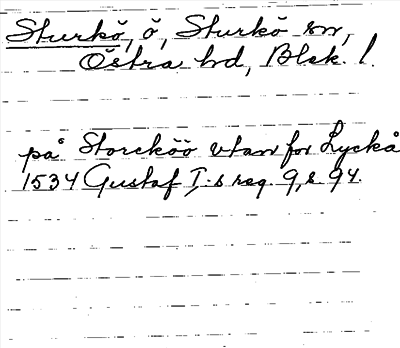 Sturkö, ö, Sturkö sn,
Östra hd, Blek. l.
på Storcköö vtan for Lyckå
1534 Gustaf I:s reg. 9, s 94.